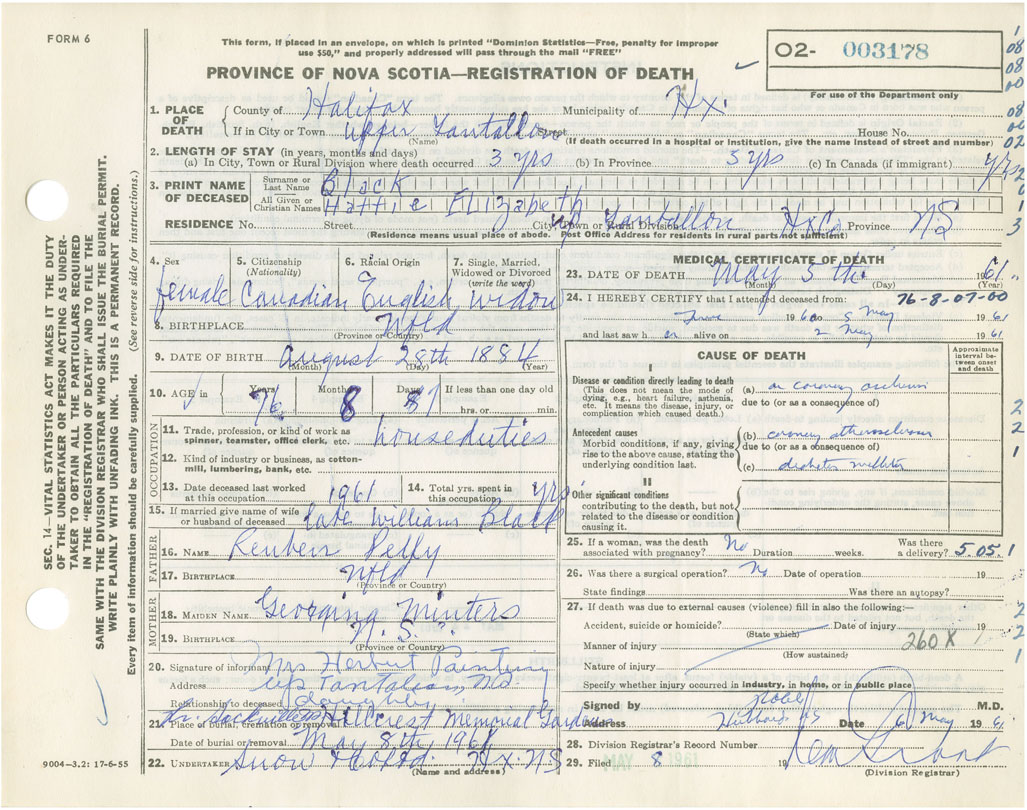 FORM 6
This form, if placed in an envelope, on which is printed "Dominion Statistics—Free, penalty for improper
use $50," and properly addressed will pass through the mail "FREE"
O2- 003178
For use of the Department only
PROVINCE OF NOVA SCOTIA—REGISTRATION OF DEATH
1. PLACE OF DEATH
County of Halifax Municipality of Hx.
If in City or Town Upper Tantallon Street House No.
(Name) (If death occurred in a hospital or institution, give the name instead of street and number)
2. LENGTH OF STAY (in years, months and days)
(a) In City, Town or Rural Division where death occurred 3 yrs (b) In Province 5 yrs (c) In Canada (if immigrant) yrs
3. PRINT NAME OF DECEASED
Surname or Last Name Black
All Given or Christian Names Hattie Elizabeth
RESIDENCE No. Street City, Town or Rural Division Up Tantallon Hx Co Province NS
(Residence means usual place of abode. Post Office Address for residents in rural parts not sufficient)
4. Sex
5. Citizenship
(Nationality)
6. Racial Origin
7. Single, Married, Widowed or Divorced
(write the word)
female Canadian English widow
8. BIRTHPLACE Nfld
(Province or Country)
9. DATE OF BIRTH August 28th 1884
(Month) (Day) (Year)
10. AGE in Years Months Days If less than one day old
76 8 hrs. or min.
OCCUPATION
11. Trade, profession, or kind of work as
spinner, teamster, office clerk, etc. houseduties
12. Kind of industry or business, as cotton-
mill, lumbering, bank, etc.
13. Date deceased last worked
at this occupation 1961
14. Total yrs. spent in
this occupation yrs
15. If married give name of wife
or husband of deceased late William Black
FATHER
16. NAME Reuben
17. BIRTHPLACE Nfld
(Province or Country)
MOTHER
18. MAIDEN NAME Georgina Minters
19. BIRTHPLACE N.S.
(Province or Country)
20. Signature of informant Mrs Herbert
Address Up Tantallon, NS
Relationship to deceased daughter
21. Place of burial, cremation or removal Hillcrest Memorial Gardens
Date of burial or removal May 8th 1961
22. UNDERTAKER Snow & Co Ltd. Hx. NS
(Name and address)
MEDICAL CERTIFICATE OF DEATH
23. DATE OF DEATH May 5th 1961
(Month) (Day) (Year)
24. I HEREBY CERTIFY that I attended deceased from: 76-8-07-00
1960 to 5 May 1961
and last saw h er alive on 2 May 1961
CAUSE OF DEATH
Approximate interval between onset and death
I
Disease or condition directly leading to death
(This does not mean the mode of
dying, e.g., heart failure, asthenia,
etc. It means the disease, injury, or
complication which caused death.)
(a) coronary
due to (or as a consequence of)
Antecedent causes
Morbid conditions, if any, giving
rise to the above cause, stating the
underlying condition last.
(b) coronary atherosclerosis
due to (or as a consequence of)
(c) diabetes mellitus
II
Other significant conditions
contributing to the death, but not
related to the disease or condition
causing it.
25. If a woman, was the death
associated with pregnancy? No Duration weeks. Was there
a delivery? 5.05.1
26. Was there a surgical operation? No Date of operation 19
State findings Was there an autopsy?
27. If death was due to external causes (violence) fill in also the following:—
Accident, suicide or homicide? Date of injury 19
(State which)
Manner of injury 260X
(How sustained)
Nature of injury
Specify whether injury occurred in industry, in home, or in public place
Signed by M.D.
Address Date 6 May 1961
28. Division Registrar's Record Number
29. Filed MAY 8 1961 19
(Division Registrar)
SEC. 14—VITAL STATISTICS ACT MAKES IT THE DUTY
OF THE UNDERTAKER OR PERSON ACTING AS UNDER-
TAKER TO OBTAIN ALL THE PARTICULARS REQUIRED
IN THE "REGISTRATION OF DEATH" AND TO FILE THE
SAME WITH THE DIVISION REGISTRAR WHO SHALL ISSUE THE BURIAL PERMIT.
WRITE PLAINLY WITH UNFADING INK. THIS IS A PERMANENT RECORD.
Every item of information should be carefully supplied. (See reverse side for instructions.)
9004-3.2: 17-6-55